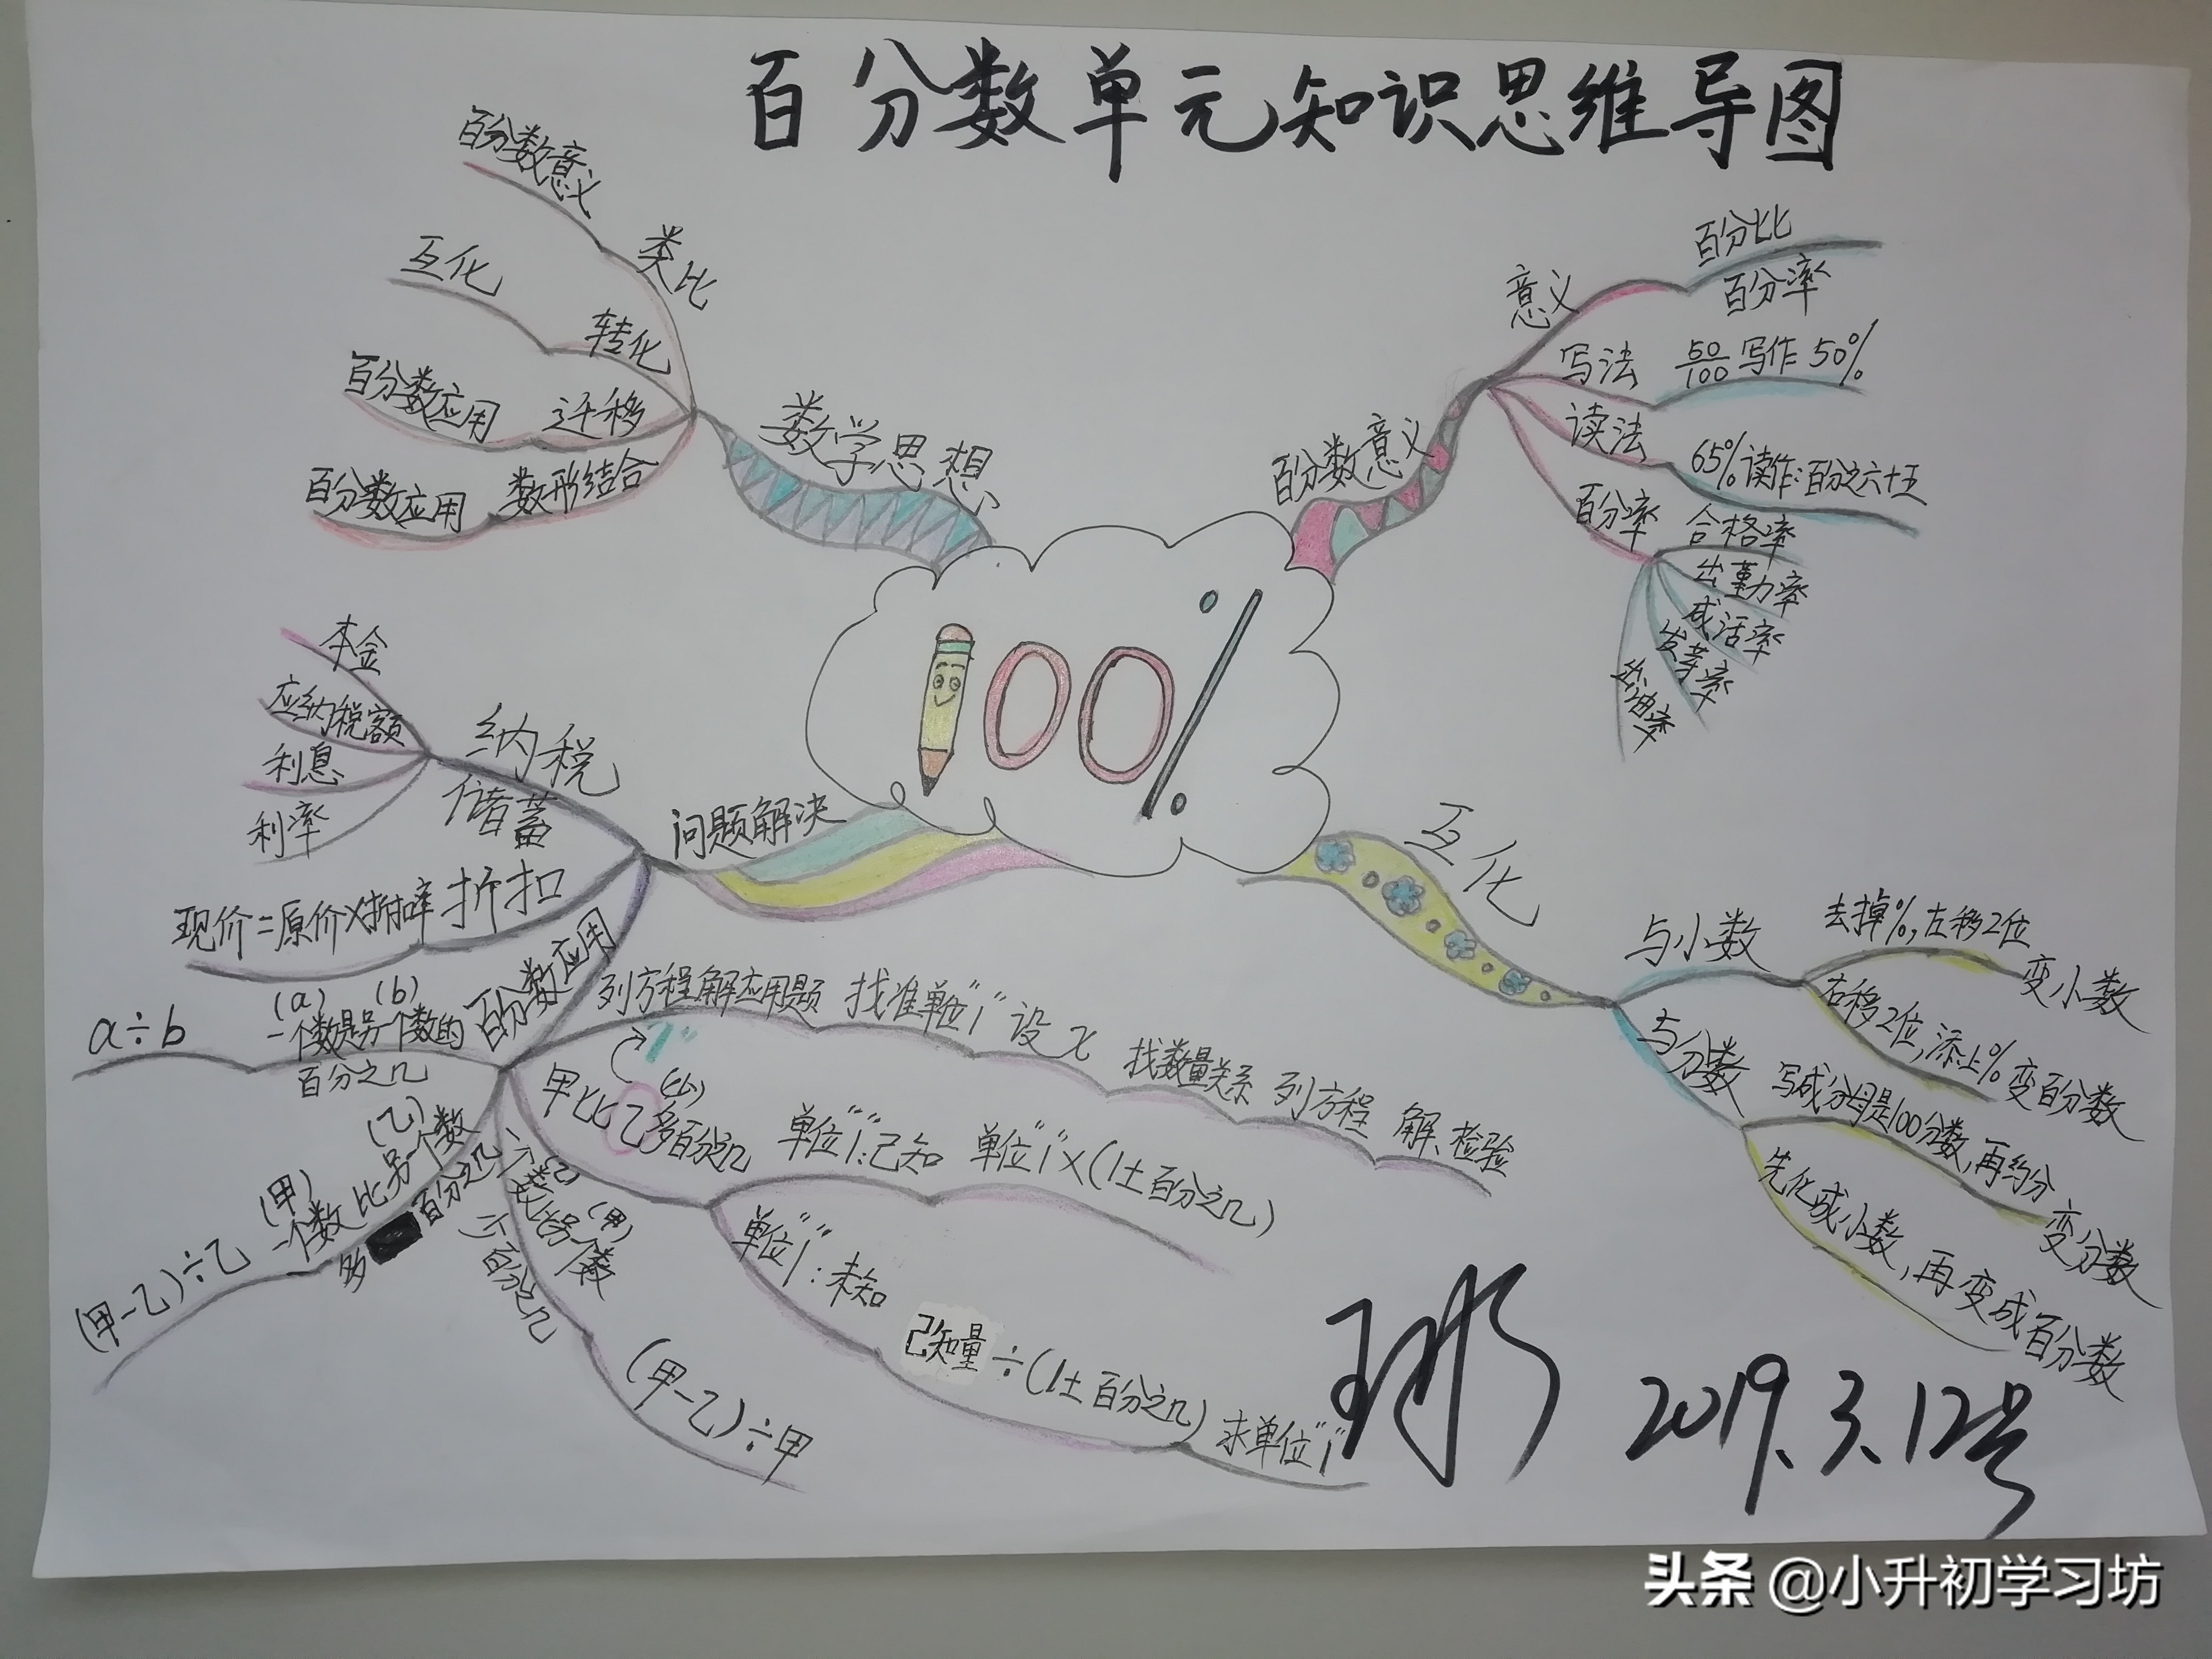 百分数单元知识思维导图
数学思想
类比
百分数意义
转化
互化
迁移
百分数应用
数形结合
百分数应用
百分数意义
意义
百分比
百分率
写法
50/100 写作 50%
读法
65%读作:百分之六十五
百分率
合格率
出勤率
成活率
发芽率
出油率
100%
互化
与小数
去掉%,左移2位
变小数
右移2位,添上%
变百分数
与分数
写成分母是100分数,再约分
变分数
先化成小数,再变成百分数
问题解决
纳税
储蓄
本金
应纳税额
利息
利率
折扣
现价=原价×折扣率
百分数应用
(a) (b)
一个数是另一个数的
百分之几
a÷b
(甲) (乙)
一个数比另一个数
多 百分之几
(甲-乙)÷乙
(甲)
少百分之几
(甲-乙)÷甲
列方程解应用题 找准单位"1" 设x 找数量关系 列方程 解、检验
"1"
(少)
甲比乙多百分之几
单位"1":已知 单位"1"×(1±百分之几)
单位"1":未知
已知量÷(1±百分之几) 求单位"1"
2019.3.12号
头条 @小升初学习坊